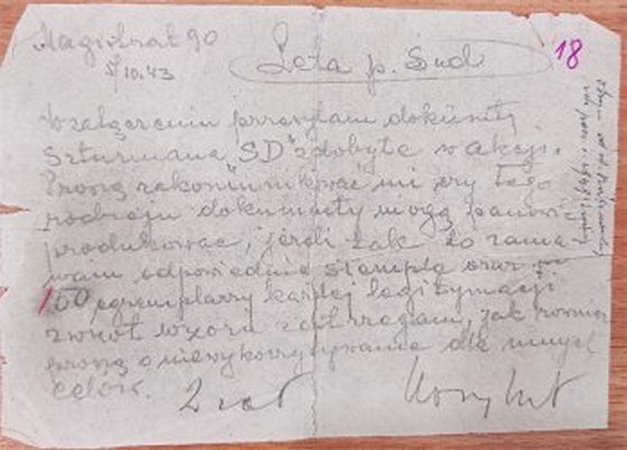 Magistrat 90
5/10.43
Zeta p. Sud
18
W załączeniu przesyłam dokumęty
Szturmana "SD" zdobyte w akcji.
Proszę zakomunikować mi czy tego
rodzaju dokumenty mogą panowie
produkować, jeżeli tak to zama-
wiam odpowiednie stemple oraz
150 egzemplarzy każdej legitymacji
zwrot wzoru zastrzegam, jak również
proszę o niewykorzystywanie dla innych
celów.
2 zał